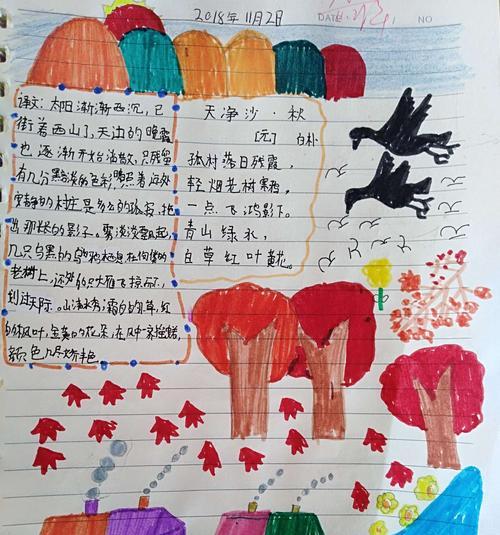 2018年11月2日
DATE
NO
天净沙·秋
[元] 白朴
孤村落日残霞，
轻烟老树寒鸦，
一点飞鸿影下。
青山绿水，
白草红叶黄花。
译文：太阳渐渐西沉，已
衔着西山了，天边的晚霞
也逐渐开始消散，只残留
有几分黯淡的色彩，映照着远处
安静的村庄是多么的孤寂，拖
出那长的影子。雾淡淡飘起，
几只乌黑的乌鸦栖息在佝偻的
老树上，远处的只大雁飞掠而下，
到过天际。山清水秀；霜白的小草，红
的枫叶，金黄的花朵，在风中一齐摇曳，
颜色几尽妖艳。